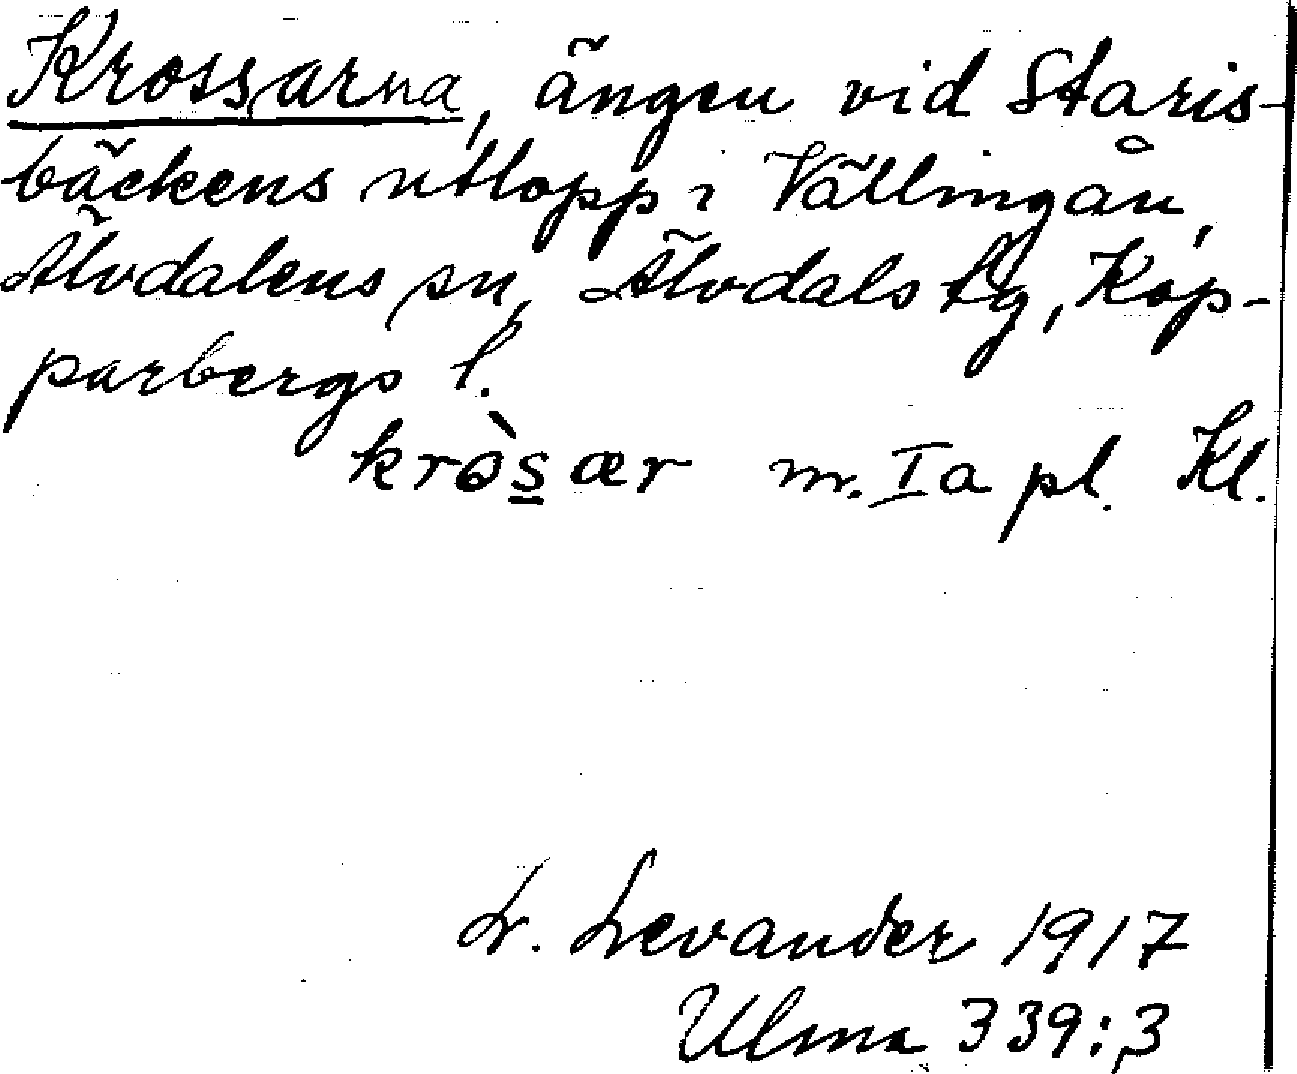 Krossarna, ängen vid Staris-
bäckens utlopp i Vällingån,
Älvdalens sn, Älvdals tg, Kop-
parbergs l.
kròs̲ær m. Ia pl. Kl.
L. Levander 1917
Ulma 339:3